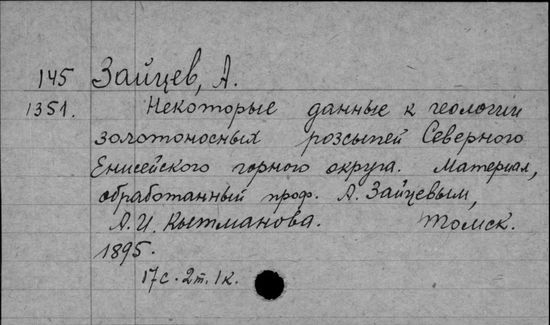 145 Зайцев, А.
1351. Некоторые данные к геологии
золотоносных розсыпей Северного
Енисейского горного округа. Материал,
обработанный проф. А. Зайцевым,
А.И. Кытманова. Томск.
1895.
17с. 2т. 1к.